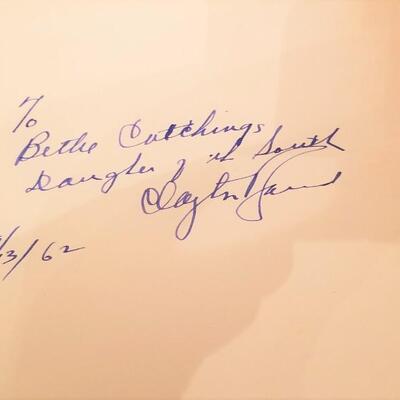 To
Bethe Catchings
Daughter of the South
Clayton Rand
/13/62